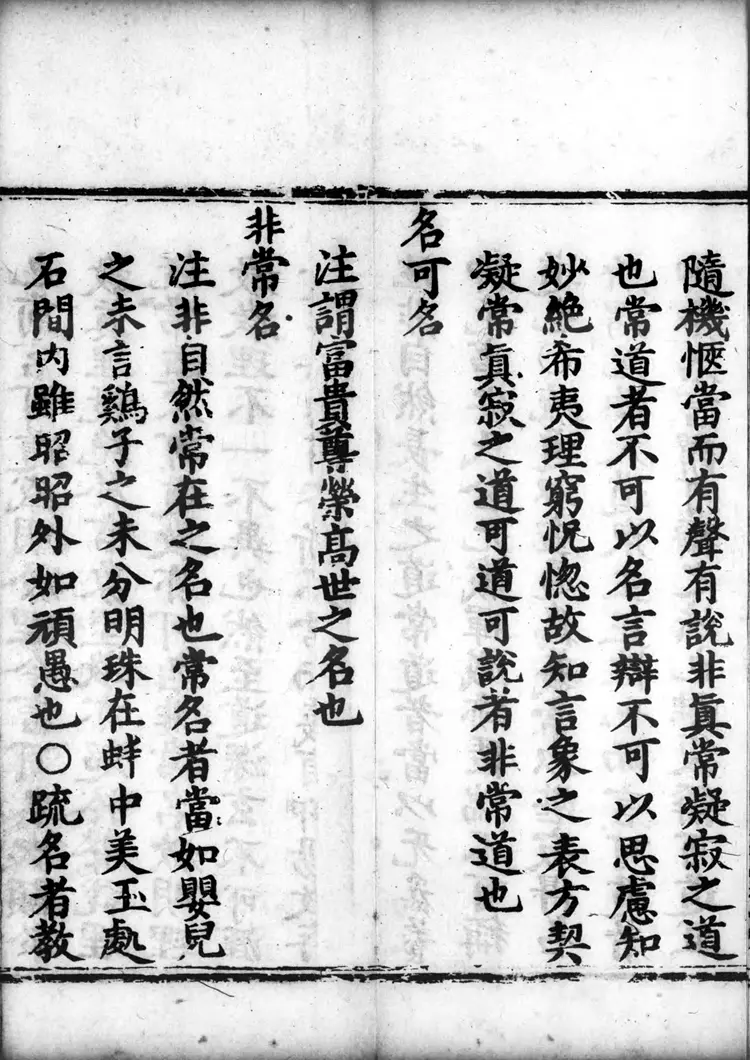 隨機愜當而有聲有說非眞常凝寂之道
也常道者不可以名言辯不可以思慮知
妙絶希夷理窮怳惚故知言象之表方契
凝常眞寂之道可道可說者非常道也
名可名
注謂富貴尊榮髙世之名也
非常名
注非自然常在之名也常名者當如嬰兒
之未言鷄子之未分明珠在蚌中美玉處
石間内雖昭昭外如頑愚也○䟽名者教